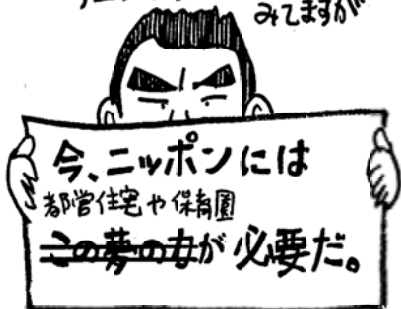 みてますが
今、ニッポンには
都営住宅や保育園
この夢の力が必要だ。